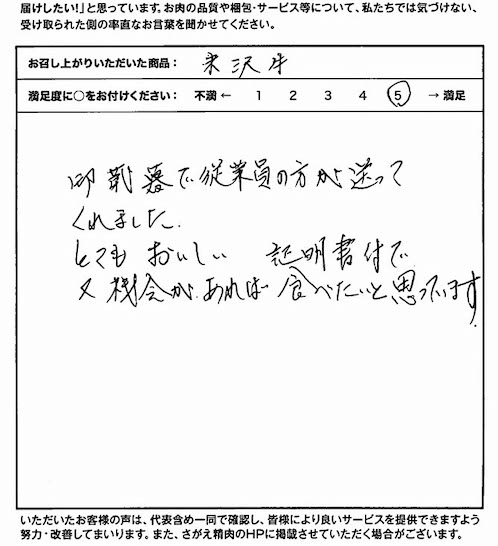 届けしたい！」と思っています。お肉の品質や梱包・サービス等について、私たちでは気づけない、
受け取られた側の率直なお言葉を聞かせてください。
お召し上がりいただいた商品： 米沢牛
満足度に○をお付けください： 不満 ← 1 2 3 4 5 → 満足
で従業員の方が送って
くれました.
とても おいしい 証明書付で
又機会があれば食べたいと思っています.
いただいたお客様の声は、代表含め一同で確認し、皆様により良いサービスを提供できますよう
努力・改善してまいります。また、さがえ精肉のHPに掲載させていただく場合がございます。